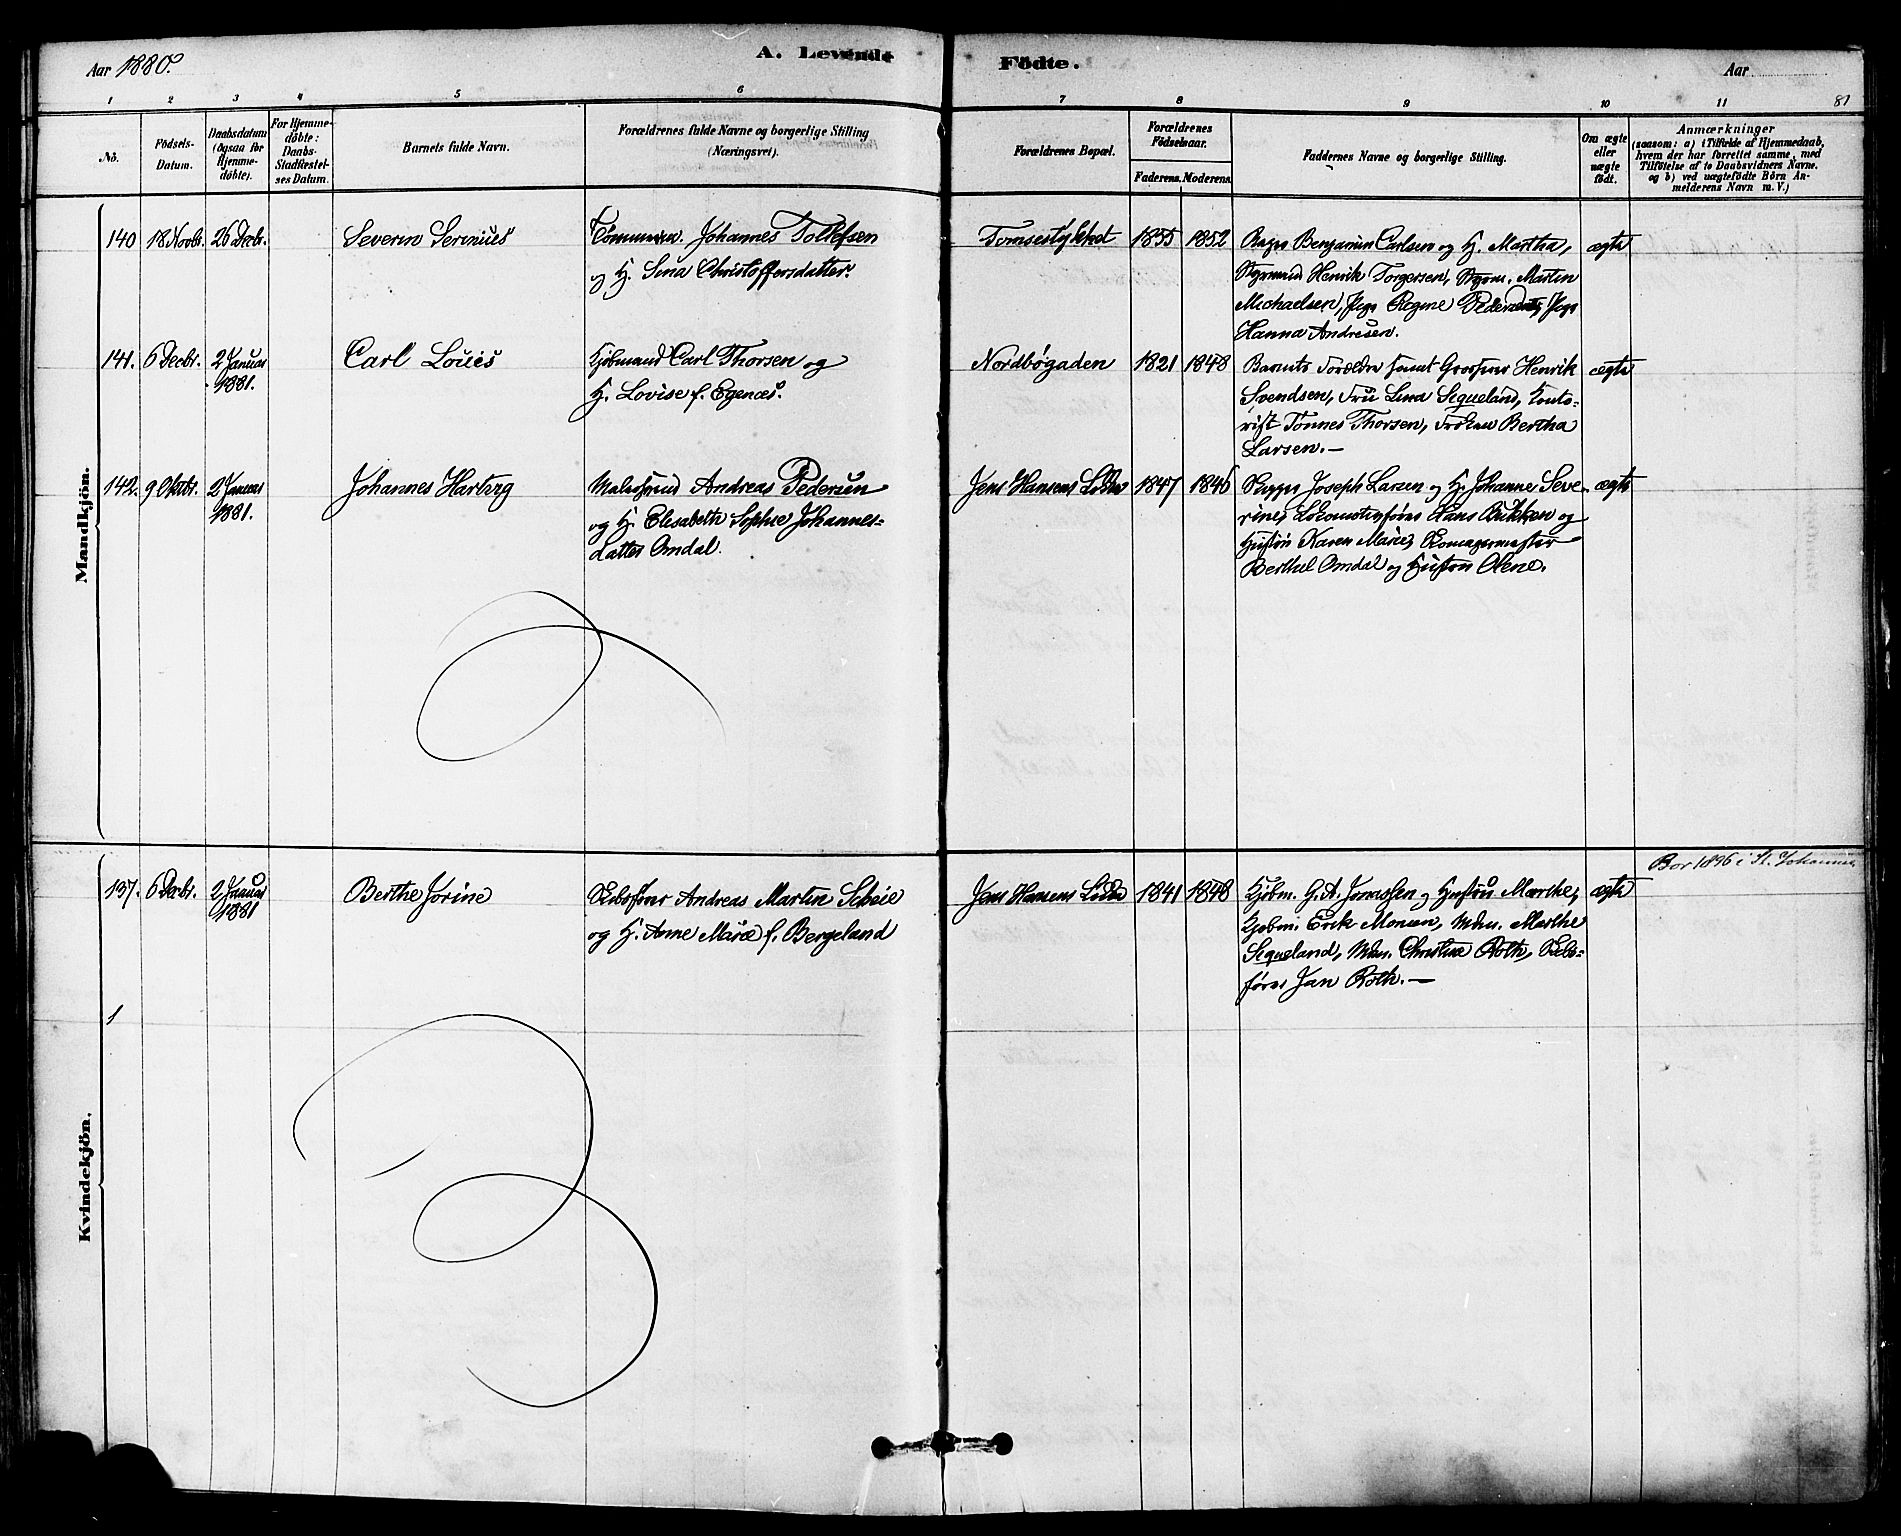 Aar 1880.
A. Levende Fødte.
Aar
1 2 3 4 5 6 7 8 9 10 11 81
No.
Födsels-Datum.
Daabsdatum (ogsaa for Hjemme-döbte).
For Hjemme-döbte: Daabs-Stadfæstel-ses Datum.
Barnets fulde Navn.
Forældrenes fulde Navne og borgerlige Stilling (Næringsvei).
Forældrenes Bopæl.
Forældrenes Födselsaar.
Faderens. Moderens.
Faddernes Navne og borgerlige Stilling.
Om ægte eller uægte født.
Anmærkninger
(saasom: a) i Tilfælde af Hjemmedaab,
hvem der har forrettet samme, med
Tilföielse af to Daabsvidners Navne.
og b) ved uægtefödte Börn An-
melderens Navn m. V.)
Mandkjön.
140 18 Novbr. 26 Decbr. Severin Serenius
Tømmerm. Johannes Tollefsen
og H. Sina Christoffersdatter.
Tomsestykket 1855 1852
Benjamin Carlsen og H. Martha,
Styrmand Henrik Torgersen, Styrm. Martin
Michaelsen, Pige Regine Pige
Hanna Andresen.
ægte
141. 6 Decbr. 2 Januar 1881. Carl Louis
Kjøbmand Carl Thorsen og
H. Lovise f. Egenæs.
Nordbøgaden 1821 1848
Barnets Forældre samt Grosserer Henrik
Svendsen, Fru Lina Siqueland, Konto-
rist Tønnes Thorsen, Frøken Bertha
Larsen.—
ægte
142. 9 Oktbr. 2 Januar 1881. Johannes Hartvig
Malersvend Andreas Pedersen
og H. Elisabeth Sophie Johannes-
datter Omdal.
Jens Hansens Løkke 1847 1846
Joseph Larsen og H. Johanne Seve-
rine, Lokomotivfører Hans Bukken og
Hustru Karen Marie,
Berthel Omdal og Hustru Olene.
ægte
Kvindekjön.
137. 6 Decbr. 2 Januar 1881 Berthe Jorine
Skibsfører Andreas Martin Scheie
og H. Anne Marie f. Bergeland
Jens Hansens Løkke 1841 1848
Kjøbm. G. A. Jonassen og Hustru Marthe,
Kjøbm. Erik Monsen, Mdm. Marthe
Siqueland, Mdm. Christine Roth, Skibs-
fører Jan Roth.—
ægte
Bor 1896 i St. Johannes
1